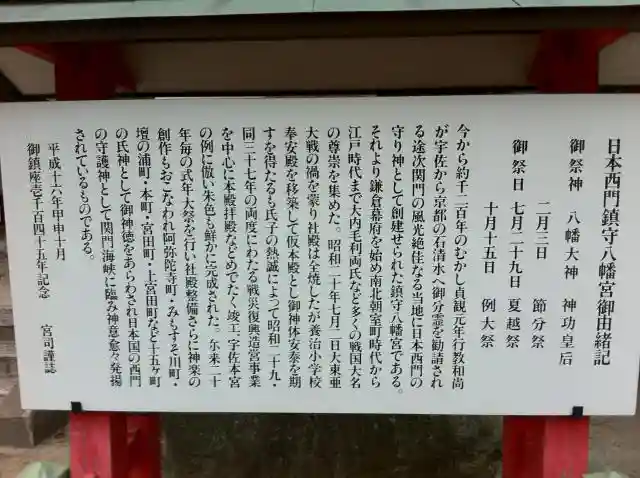 日本西門鎮守八幡宮御由緒記
御祭神 八幡大神 神功皇后
二月三日 節分祭
御祭日 七月二十九日 夏越祭
十月十五日 例大祭
今から約千二百年のむかし貞観元年行教和尚
が宇佐から京都の石清水へ御分霊を勧請され
る途次関門の風光絶佳なる当地に日本西門の
守り神として創建せられた鎮守八幡宮である。
それより鎌倉幕府を始め南北朝室町時代から
江戸時代まで大内毛利両氏など多くの戦国大名
の尊崇を集めた。昭和二十年七月二日大東亜
大戦の禍を蒙り社殿は全焼したが養治小学校
奉安殿を移築して仮本殿とし御神体安泰を期
すを得たるも氏子の熱誠によって昭和二十九・
同三十七年の両度にわたる戦災復興造営事業
を中心に本殿拝殿などめでたく竣工宇佐本宮
の例に倣い朱色も鮮かに完成された。尓来二十
年毎の式年大祭を行い社殿整備さらに神楽の
創作もおこなわれ阿弥陀寺町・みもすそ川町・
壇の浦町・本町・宮田町・上宮田町など十五ヶ町
の氏神として御神徳をあらわされ日本国の西門
の守護神として関門海峡に臨み神意愈々発揚
されているものである。
平成十六年甲申十月
御鎮座壱千百四十五年記念 宮司謹誌